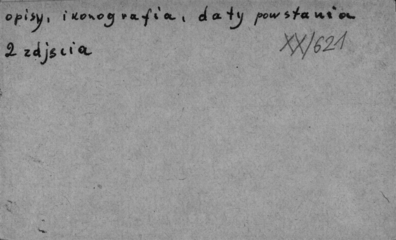 opisy, ikonografia, daty powstania
2 zdjścia
XX/621